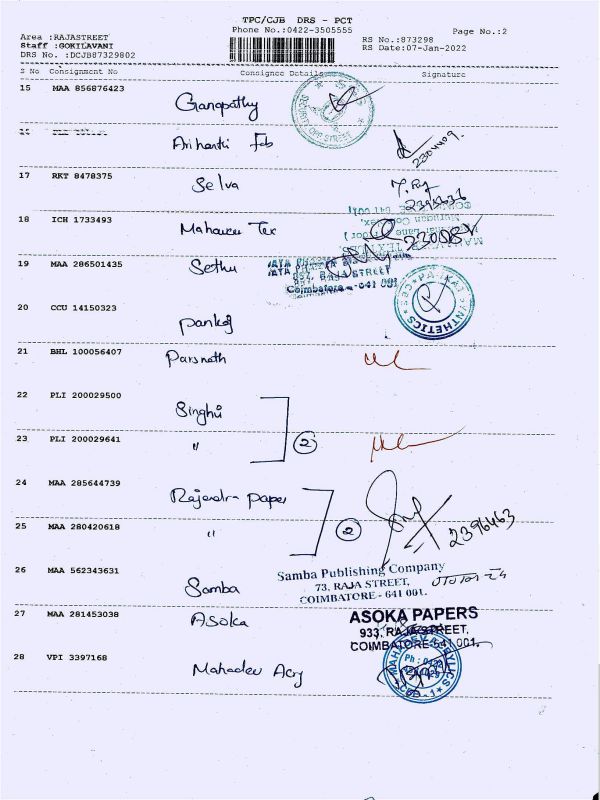 TPC/CJB DRS - PCT
Phone No.:0422-3505555
Page No.:2
Area :RAJASTREET
RS No.:873298
Staff :GOKILAVANI
RS Date:07-Jan-2022
DRS No. :DCJB87329802
S No Consignment No Consignee Details Signature
15 MAA 856876423 Ganapathy
SECURITY OPP STREET
16 Arihanth Fab
2304409
17 RKT 8478375 Selva
18 ICH 1733493 Mahaveer Tex
19 MAA 286501435 Sethu
957, RAJA STREET
Coimbatore - 641 001
20 CCU 14150323 Pankaj
SYNTHETICS
21 BHL 100056407 Parsnath
22 PLI 200029500 Singhvi
23 PLI 200029641 " 2
24 MAA 285644739 Rajendra Paper
25 MAA 280420618 " 2
2396463
26 MAA 562343631 Samba
Samba Publishing Company
73, RAJA STREET,
COIMBATORE - 641 001.
27 MAA 281453038 Asoka
ASOKA PAPERS
933, RAJA STREET,
COIMBATORE-641 001.
28 VPI 3397168 Mahadev Acry
MAHADEV ACRYLICS
Ph : 0422
CBE - 1